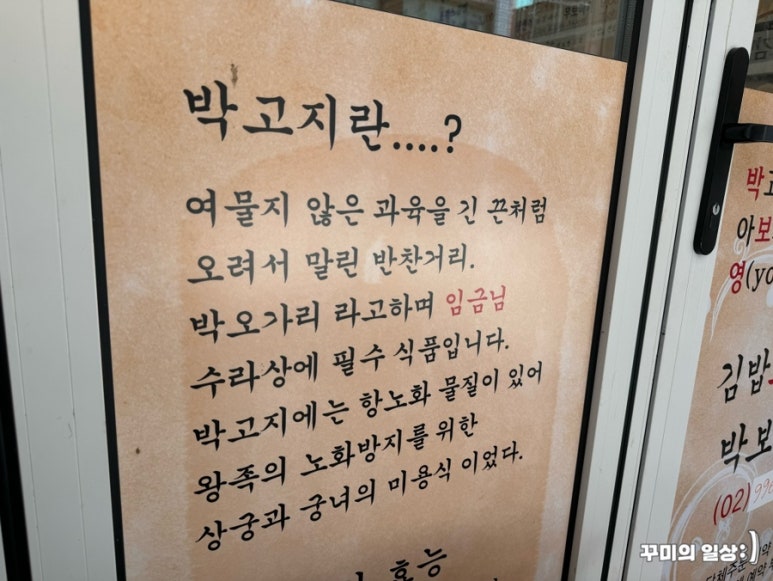 박고지란....?
여물지 않은 과육을 긴 끈처럼
오려서 말린 반찬거리.
박오가리 라고하며 임금님
수라상에 필수 식품입니다.
박고지에는 항노화 물질이 있어
왕족의 노화방지를 위한
상궁과 궁녀의 미용식 이었다.
효능
박고
아보
영(yo
김밥
박보
(02)996
꾸미의 일상:)